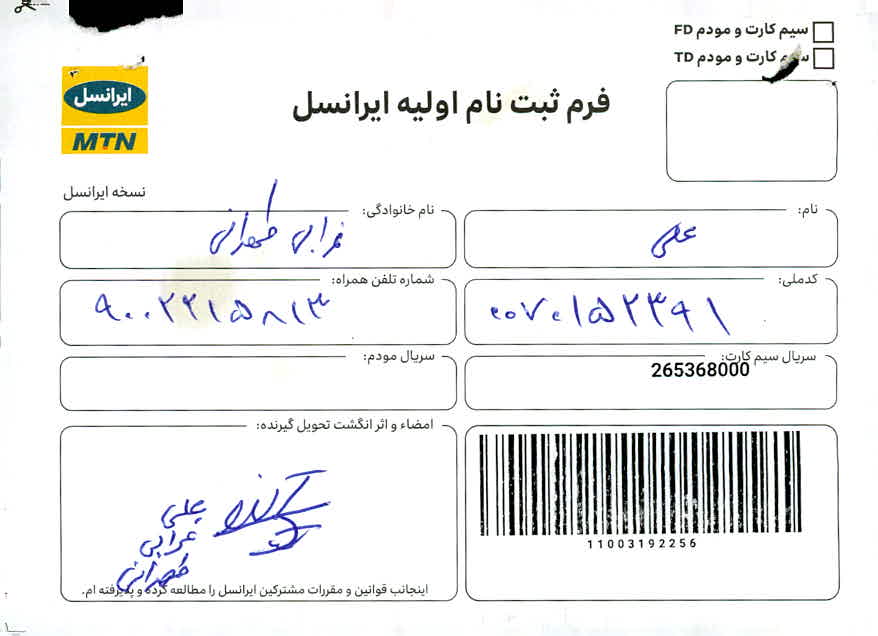 سیم کارت و مودم FD
سیم کارت و مودم TD
ایرانسل
MTN
فرم ثبت نام اولیه ایرانسل
نسخه ایرانسل
نام:
علی
نام خانوادگی:
غرابی طهرانی
کدملی:
۰۰۷۰۱۵۲۳۹۱
شماره تلفن همراه:
۹۰۰۲۲۱۵۸۱۳
سریال سیم کارت:
265368000
سریال مودم:
11003192256
امضاء و اثر انگشت تحویل گیرنده:
علی
غرابی
طهرانی
اینجانب قوانین و مقررات مشترکین ایرانسل را مطالعه کرده و پذیرفته ام.